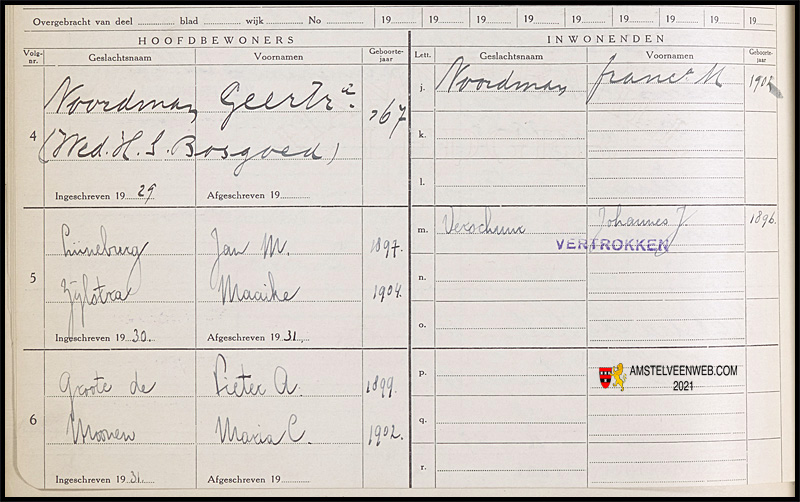 Overgebracht van deel blad wijk No 19 19 19 19 19 19 19 19 19
HOOFDBEWONERS INWONENDEN
Volg-nr. Geslachtsnaam Voornamen Geboorte-jaar Lett. Geslachtsnaam Voornamen Geboorte-jaar
4 Noordman Geertr. '67 j. Noordman franc. M 1902
(Wed. H. S. Bosgoed) k.
Ingeschreven 19 29 Afgeschreven 19 l.
5 Lüneburg Jan M. 1897. m. Verschuur Johannes J. 1896.
VERTROKKEN
Zijlstra Maaike 1904. n.
Ingeschreven 19 30. Afgeschreven 19 31. o.
6 Groote de Pieter A. 1899. p.
AMSTELVEENWEB.COM
2021
Moonen Maria C. 1902. q.
Ingeschreven 19 31. Afgeschreven 19 r.